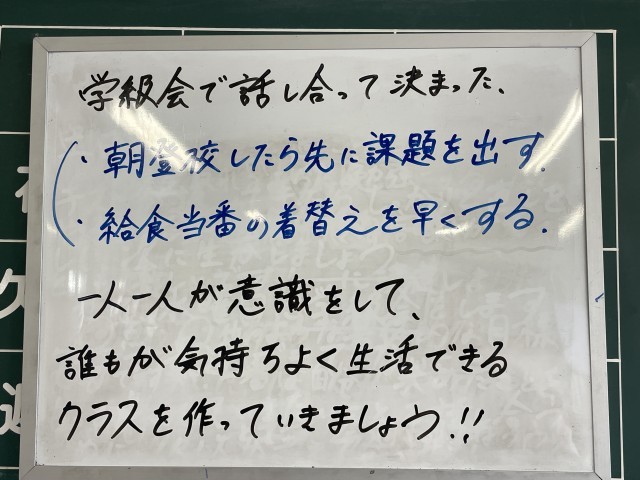 学級会で話し合って決まった、
・朝登校したら先に課題を出す.
・給食当番の着替えを早くする.
一人一人が意識をして、
誰もが気持ちよく生活できる
クラスを作っていきましょう!!